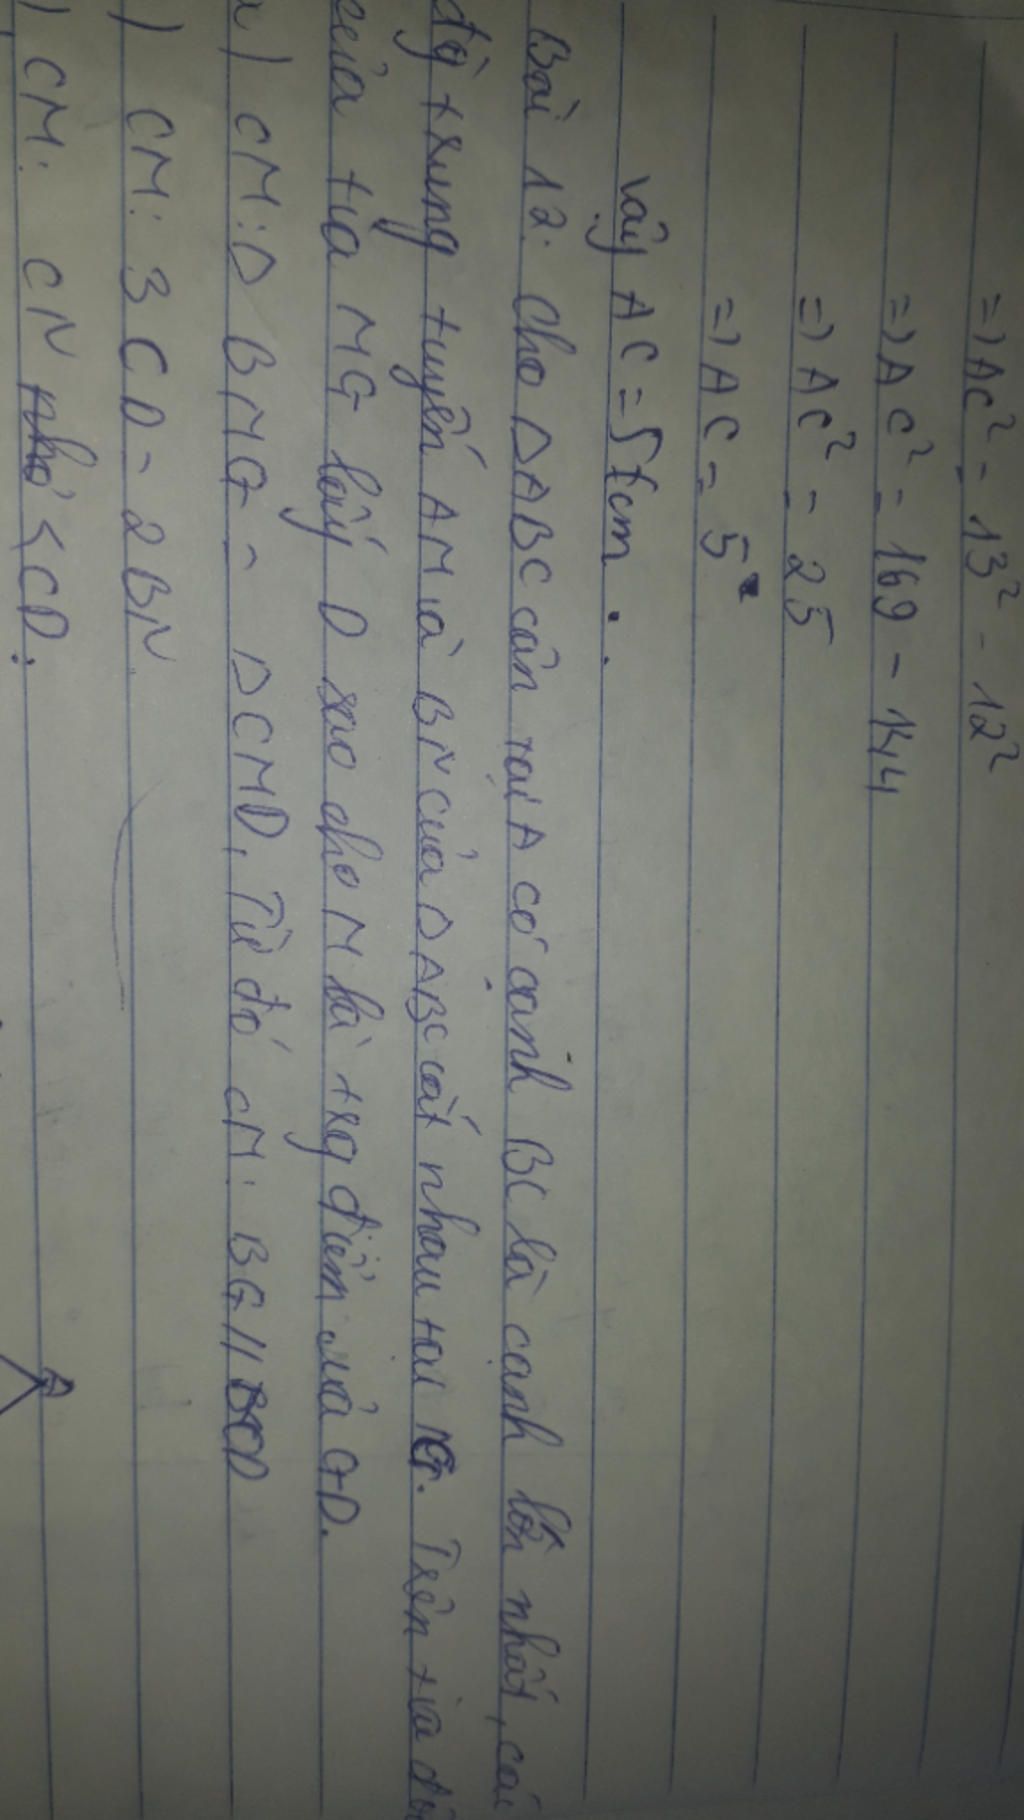 => AC² = 13² - 12²
=> AC² = 169 - 144
=> AC² = 25
=> AC = 5
Vậy AC = 5 cm.
Bài 12: Cho △ABC cân tại A có cạnh BC là cạnh lớn nhất, các
đg trung tuyến AM và BN của △ABC cắt nhau tại G. Trên tia đối
của tia MG lấy D sao cho M là trg điểm của GD.
a) CM: △BMG = △CMD. Từ đó CM: BG // CD
) CM: 3CD = 2BN
) CM: CN < CD.
A